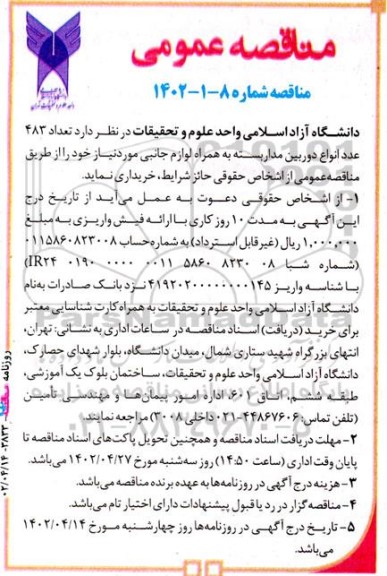 مناقصه عمومی
مناقصه شماره ۸-۱-۱۴۰۲
دانشگاه آزاد اسلامی واحد علوم و تحقیقات در نظر دارد تعداد ۴۸۳
عدد انواع دوربین مداربسته به همراه لوازم جانبی موردنیاز خود را از طریق
مناقصه‌عمومی از اشخاص حقوقی حائز شرایط، خریداری نماید.
۱- از اشخاص حقوقی دعوت به عمل می‌آید از تاریخ درج
این آگهی به مدت ۱۰ روز کاری با ارائه فیش واریزی به مبلغ
۱,۰۰۰,۰۰۰ ریال (غیرقابل استرداد) به شماره حساب ۰۱۱۵۸۶۰۸۲۳۰۰۸
(شماره شبا ۰۸ ۸۲۳۰ ۵۸۶۰ ۰۰۱۱ ۰۰۰۰ ۰۱۹۰ IR۲۴)
با شناسه واریز ۴۱۹۲۰۲۰۰۰۰۰۰۰۰۱۴۵ نزد بانک صادرات به‌نام
دانشگاه آزاد اسلامی واحد علوم و تحقیقات به همراه کارت شناسایی معتبر
برای خرید (دریافت) اسناد مناقصه در ساعات اداری به نشانی: تهران،
انتهای بزرگراه شهید ستاری شمال، میدان دانشگاه، بلوار شهدای حصارک،
دانشگاه آزاد اسلامی واحد علوم و تحقیقات، ساختمان بلوک یک آموزشی،
طبقه ششم، اتاق ۶۰۱، اداره امور پیمان‌ها و مهندسی تأمین
(تلفن تماس: ۴۴۸۶۷۶۰۶-۰۲۱ داخلی ۳۰۰۸) مراجعه نمایند.
۲- مهلت دریافت اسناد مناقصه و همچنین تحویل پاکت‌های اسناد مناقصه تا
پایان وقت اداری (ساعت ۱۴:۵۰) روز سه‌شنبه مورخ ۱۴۰۲/۰۴/۲۷ می‌باشد.
۳- هزینه درج آگهی در روزنامه‌ها به عهده برنده مناقصه می‌باشد.
۴- مناقصه‌گزار در رد یا قبول پیشنهادات دارای اختیار تام می‌باشد.
۵- تاریخ درج آگهی در روزنامه‌ها روز چهارشنبه مورخ ۱۴۰۲/۰۴/۱۴
می‌باشد.
روزنامه
۰۲/۰۴/۱۴ - ۳۸۳۳
۰۲۱-۸۸۳۴۹۶۷۰-۵